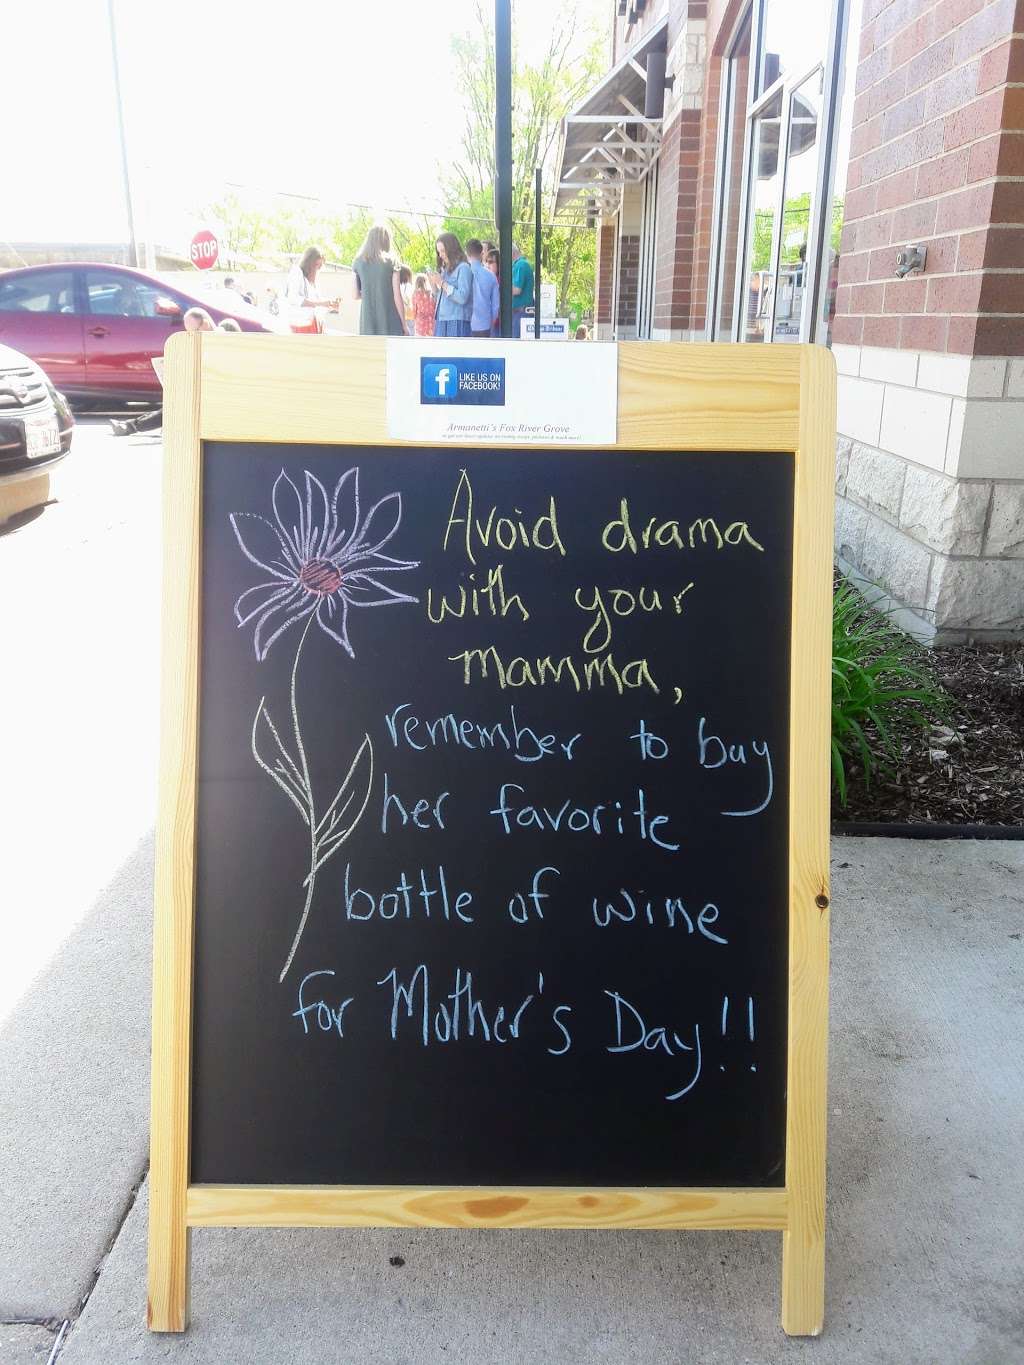 STOP
LIKE US ON
FACEBOOK!
Armanetti's Fox River Grove
Avoid drama
with your
mamma,
remember to buy
her favorite
bottle of wine
for Mother's Day!!